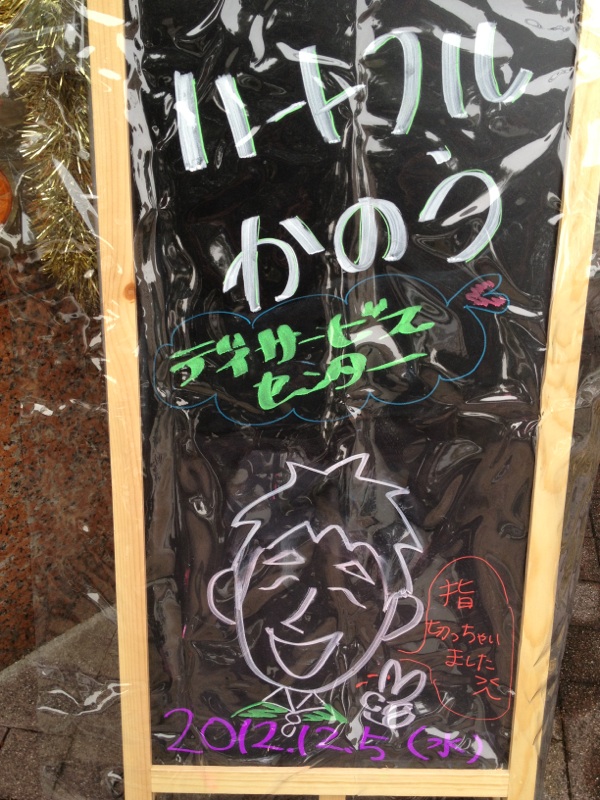 ハートフル
かのう
デイサービス
センター
指
切っちゃい
ました
2012.12.5(水)